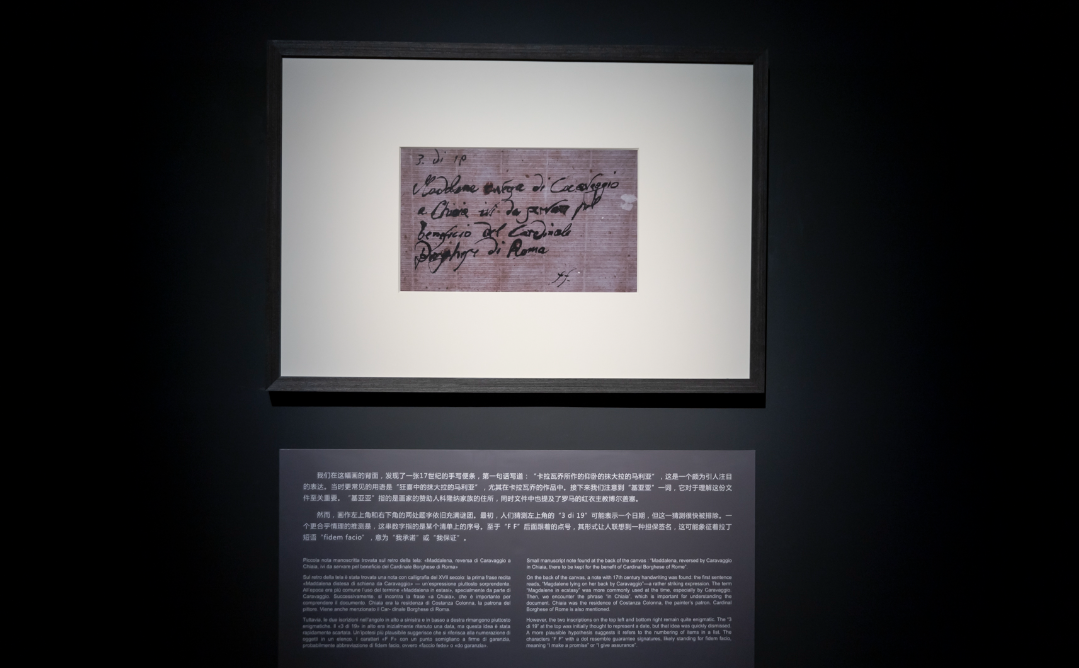 3. di 19
Maddalena di Caravaggio
a Chiaia ivi da servare pel
beneficio del Cardinale
Borghese di Roma
ff.
我们在这幅画的背面，发现了一张17世纪的手写便条，第一句话写道：“卡拉瓦乔所作的仰卧的抹大拉的马利亚”，这是一个颇为引人注目
的表达。当时更常见的用语是“狂喜中的抹大拉的马利亚”，尤其在卡拉瓦乔的作品中。接下来我们注意到“基亚亚”一词，它对于理解这份文
件至关重要。“基亚亚”指的是画家的赞助人科隆纳家族的住所，同时文件中也提及了罗马的红衣主教博尔盖塞。
然而，画作左上角和右下角的两处题字依旧充满谜团。最初，人们猜测左上角的“3 di 19”可能表示一个日期，但这一猜测很快被排除。一
个更合乎情理的推测是，这串数字指的是某个清单上的序号。至于“F F”后面跟着的点号，其形式让人联想到一种担保签名，这可能象征着拉丁
短语“fidem facio”，意为“我承诺”或“我保证”。
Piccola nota manoscritta trovata sul retro della tela: «Maddalena, reversa di Caravaggio a
Chiaia, ivi da servare pel beneficio del Cardinale Borghese di Roma»
Sul retro della tela è stata trovata una nota con calligrafia del XVII secolo: la prima frase recita
«Maddalena distesa di schiena da Caravaggio» — un'espressione piuttosto sorprendente.
All'epoca era più comune l'uso del termine «Maddalena in estasi», specialmente da parte di
Caravaggio. Successivamente, si incontra la frase «a Chiaia», che è importante per
comprendere il documento. Chiaia era la residenza di Costanza Colonna, la patrona del
pittore. Viene anche menzionato il Cardinale Borghese di Roma.
Tuttavia, le due iscrizioni nell'angolo in alto a sinistra e in basso a destra rimangono piuttosto
enigmatiche. Il «3 di 19» in alto era inizialmente ritenuto una data, ma questa idea è stata
rapidamente scartata. Un'ipotesi più plausibile suggerisce che si riferisca alla numerazione di
oggetti in un elenco. I caratteri «F F» con un punto somigliano a firme di garanzia,
probabilmente abbreviazione di fidem facio, ovvero «faccio fede» o «do garanzia».
Small manuscript note found at the back of the canvas: "Maddalena, reversed by Caravaggio
in Chiaia, there to be kept for the benefit of Cardinal Borghese of Rome".
On the back of the canvas, a note with 17th century handwriting was found: the first sentence
reads, "Magdalene lying on her back by Caravaggio"—a rather striking expression. The term
"Magdalene in ecstasy" was more commonly used at the time, especially by Caravaggio.
Then, we encounter the phrase "in Chiaia", which is important for understanding the
document. Chiaia was the residence of Costanza Colonna, the painter's patron. Cardinal
Borghese of Rome is also mentioned.
However, the two inscriptions on the top left and bottom right remain quite enigmatic. The "3
di 19" at the top was initially thought to represent a date, but that idea was quickly dismissed.
A more plausible hypothesis suggests it refers to the numbering of items in a list. The
characters "F F" with a dot resemble guarantee signatures, likely standing for fidem facio,
meaning "I make a promise" or "I give assurance".